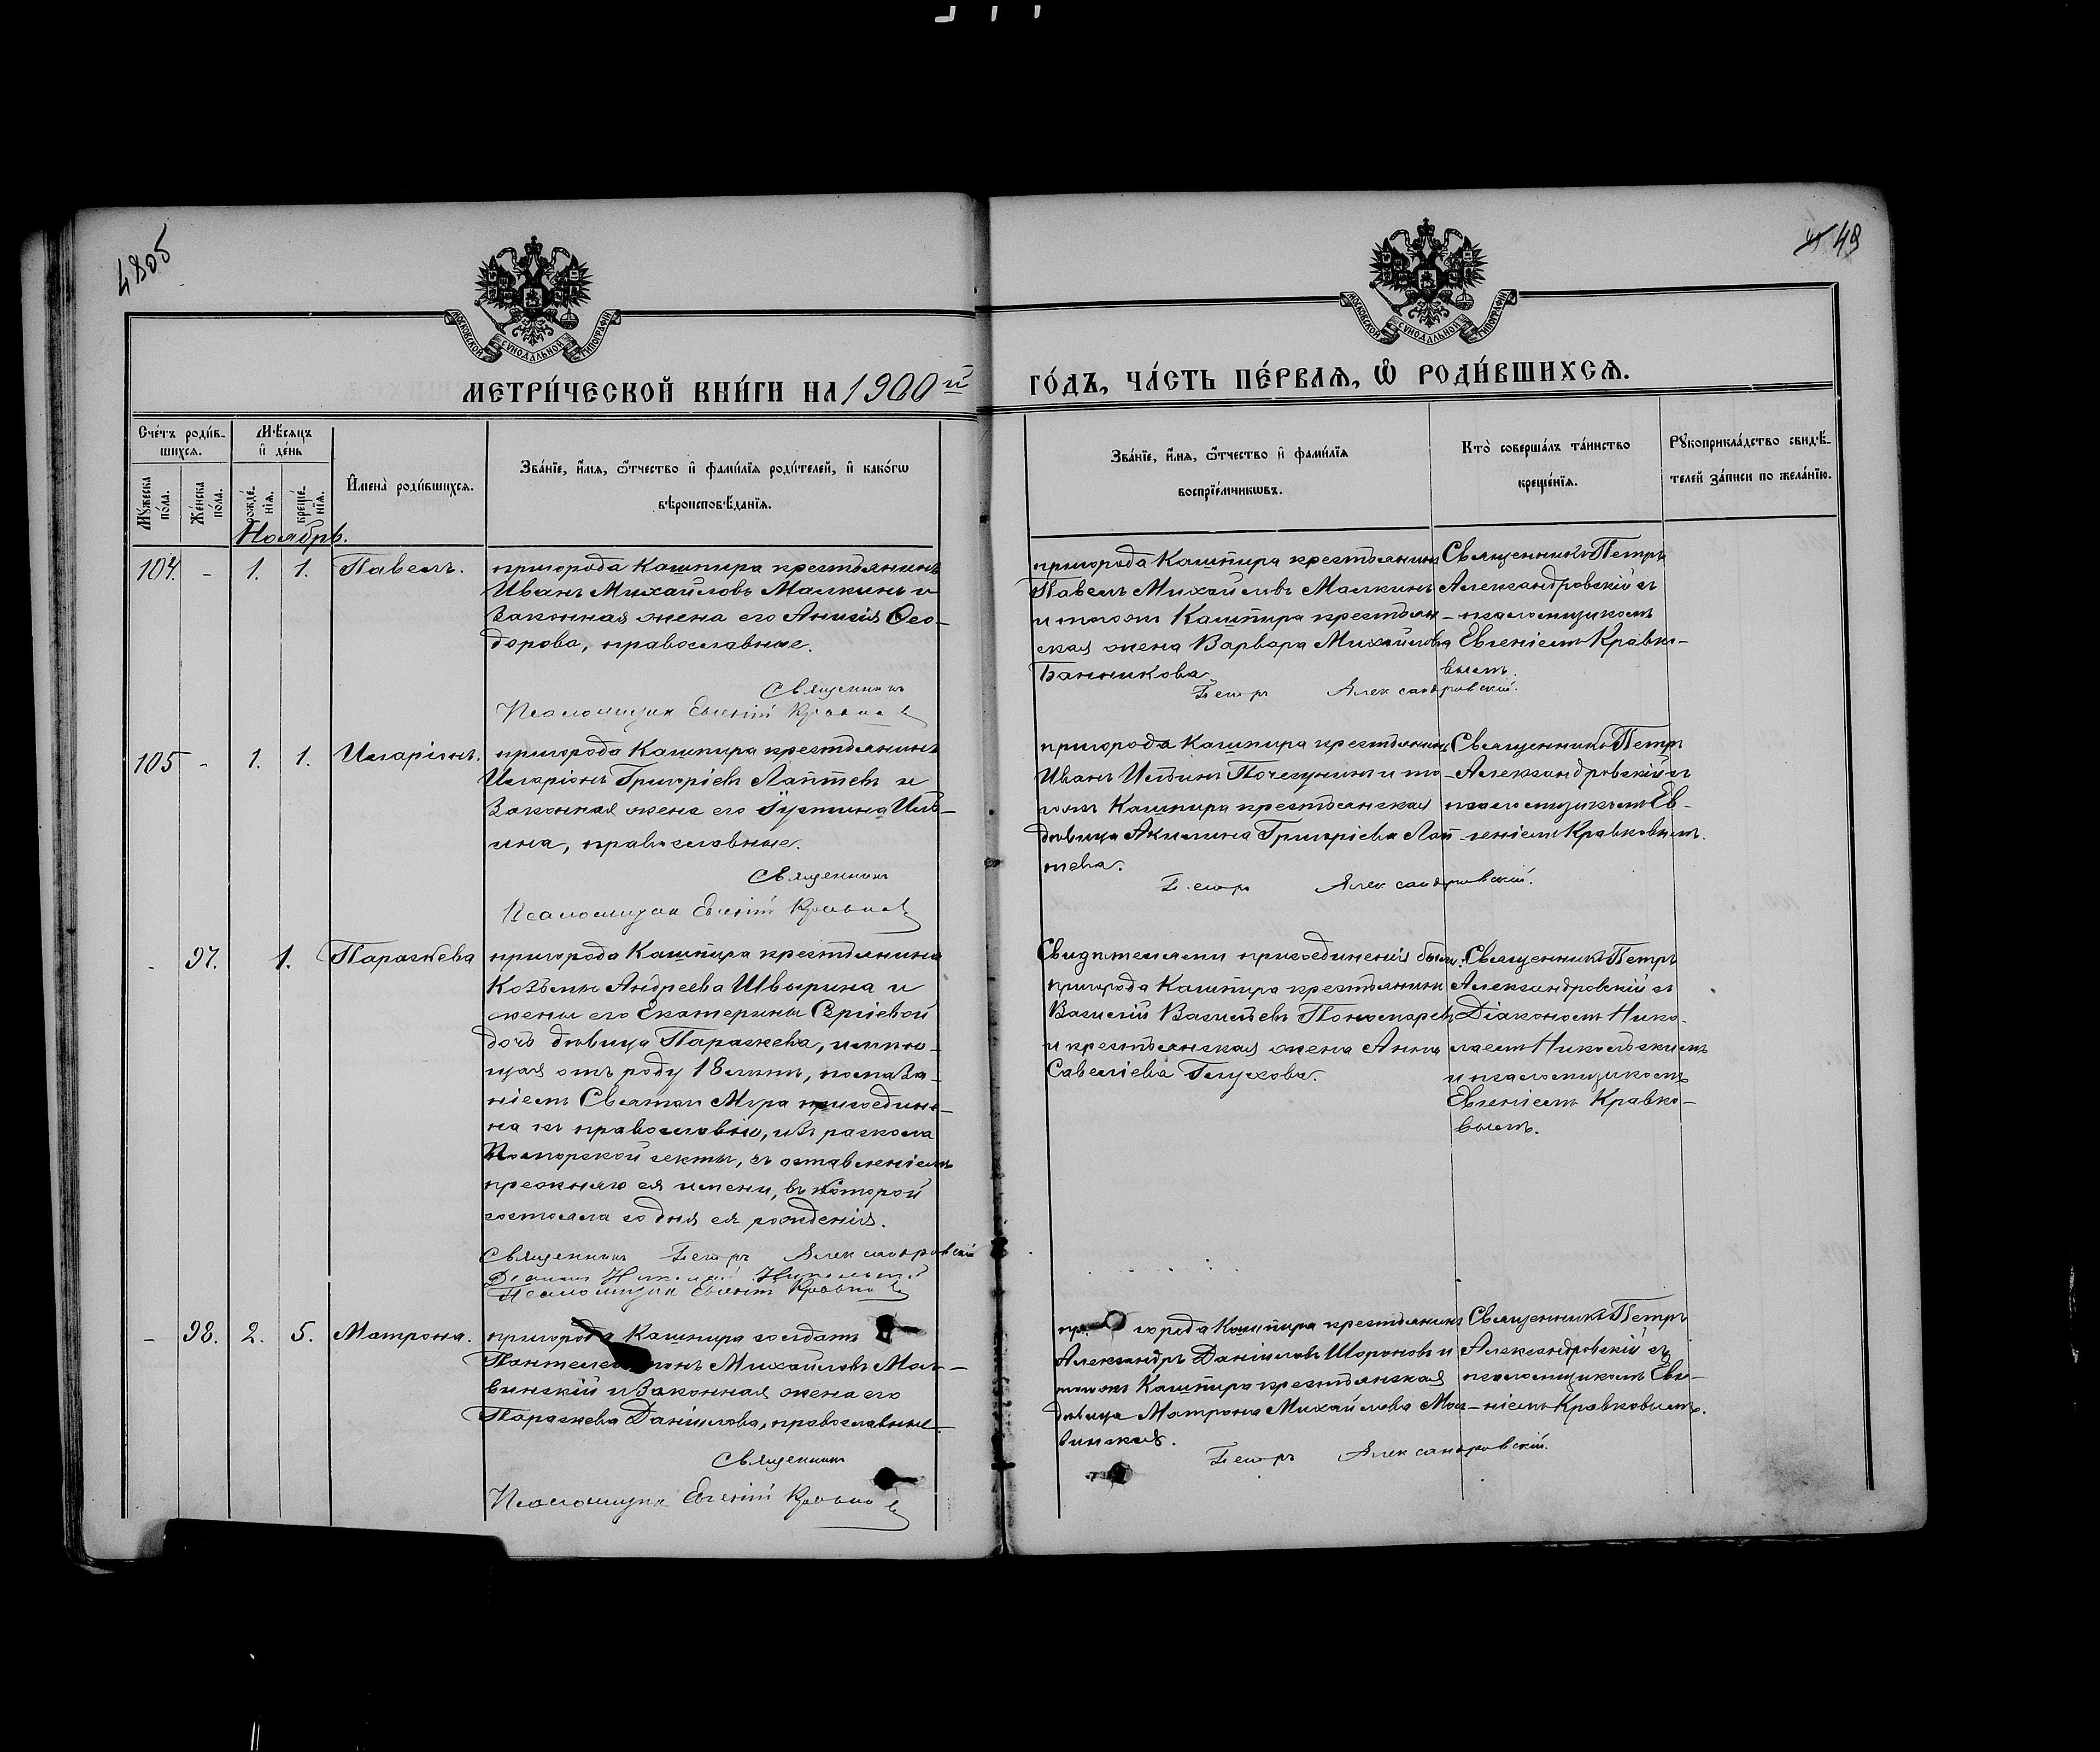 4805
49
МОСКОВСКОЙ СѴНОДАЛЬНОЙ ТИПОГРАФІИ
МОСКОВСКОЙ СѴНОДАЛЬНОЙ ТИПОГРАФІИ
МЕТРИ́ЧЕСКОЙ КНИ́ГИ НА 1900й
ГО́ДЪ, ЧА́СТЬ ПЕ́РВАѦ, Ѡ҆ РОДИ́ВШИХСѦ.
Сче́тъ роди́в-
шихсѧ.
Мѣ́сѧцъ
и҆ де́нь
Мꙋ́жеска по́ла.
Же́нска по́ла.
рожде́-
нїѧ.
креще́-
нїѧ.
И҆мена̀ роди́вшихсѧ.
Зва́нїе, и҆́мѧ, ѻ҆́тчество и҆ фами́лїѧ роди́телей, и҆ како́гѡ
вѣроисповѣ́данїѧ.
Зва́нїе, и҆́мѧ, ѻ҆́тчество и҆ фами́лїѧ
воспрїе́мчикѡвъ.
Кто̀ соверша́лъ та́инство
креще́нїѧ.
Рꙋкоприкла́дство свидѣ́-
телей за́писи по жела́нїю.
Ноябрь.
104. - 1. 1. Павелъ.
пригорода Кашпира крестьянинъ
Иванъ Михайловъ Малкинъ и
законная жена его Анисія Ѳео-
дорова, православные.
Священникъ
Псаломщикъ Евгеній Кравковъ
пригорода Кашпира крестьянинъ
Павелъ Михайловъ Малкинъ
и того же Кашпира крестьян-
ская жена Варвара Михайлова
Банникова.
Петръ Александровскій.
Священникъ Петръ
Александровскій съ
псаломщикомъ
Евгеніемъ Кравко-
вымъ.
105 - 1. 1. Иларіонъ.
пригорода Кашпира крестьянинъ
Иларіонъ Григоріевъ Лаптевъ и
законная жена его Іустина Иль-
ина, православные.
Священникъ
Псаломщикъ Евгеній Кравковъ
пригорода Кашпира крестьянинъ
Иванъ Ильинъ Почезунинъ и то-
гожъ Кашпира крестьянская
дѣвица Акилина Григоріева Лап-
тева.
Петръ Александровскій.
Священникъ Петръ
Александровскій съ
псаломщикомъ Ев-
геніемъ Кравковымъ.
- 97. 1. Параскева
пригорода Кашпира крестьянина
Козьмы Андреева Швырина и
жены его Екатерины Сергіевой
дочь дѣвица Параскева, имѣю-
щая отъ роду 18 лѣтъ, помаза-
ніемъ Святаго Мѵра присоедине-
на къ православію, изъ раскола
Поморской секты, съ оставленіемъ
прежняго ея имени, въ которой
состояла со дня ея рожденія.
Священникъ Петръ Александровскій
Діаконъ Николай Никольскій
Псаломщикъ Евгеній Кравковъ
Свидѣтелями присоединенія были:
пригорода Кашпира крестьянинъ
Василій Васильевъ Пономаревъ
и крестьянская жена Анна
Савеліева Глухова.
Священникъ Петръ
Александровскій съ
Діакономъ Нико-
лаемъ Никольскимъ
и псаломщикомъ
Евгеніемъ Кравко-
вымъ.
- 98. 2. 5. Матрона.
пригорода Кашпира солдатъ
Михайловъ Мол-
винскій и законная жена его
Параскева Даніилова, православные.
Священникъ
Псаломщикъ Евгеній Кравковъ
пригорода Кашпира крестьянинъ
Александръ Даніиловъ Шороновъ и
тогожъ Кашпира крестьянская
дѣвица Матрона Михайлова Мол-
винская.
Петръ Александровскій.
Священникъ Петръ
Александровскій съ
псаломщикомъ Евге-
ніемъ Кравковымъ.